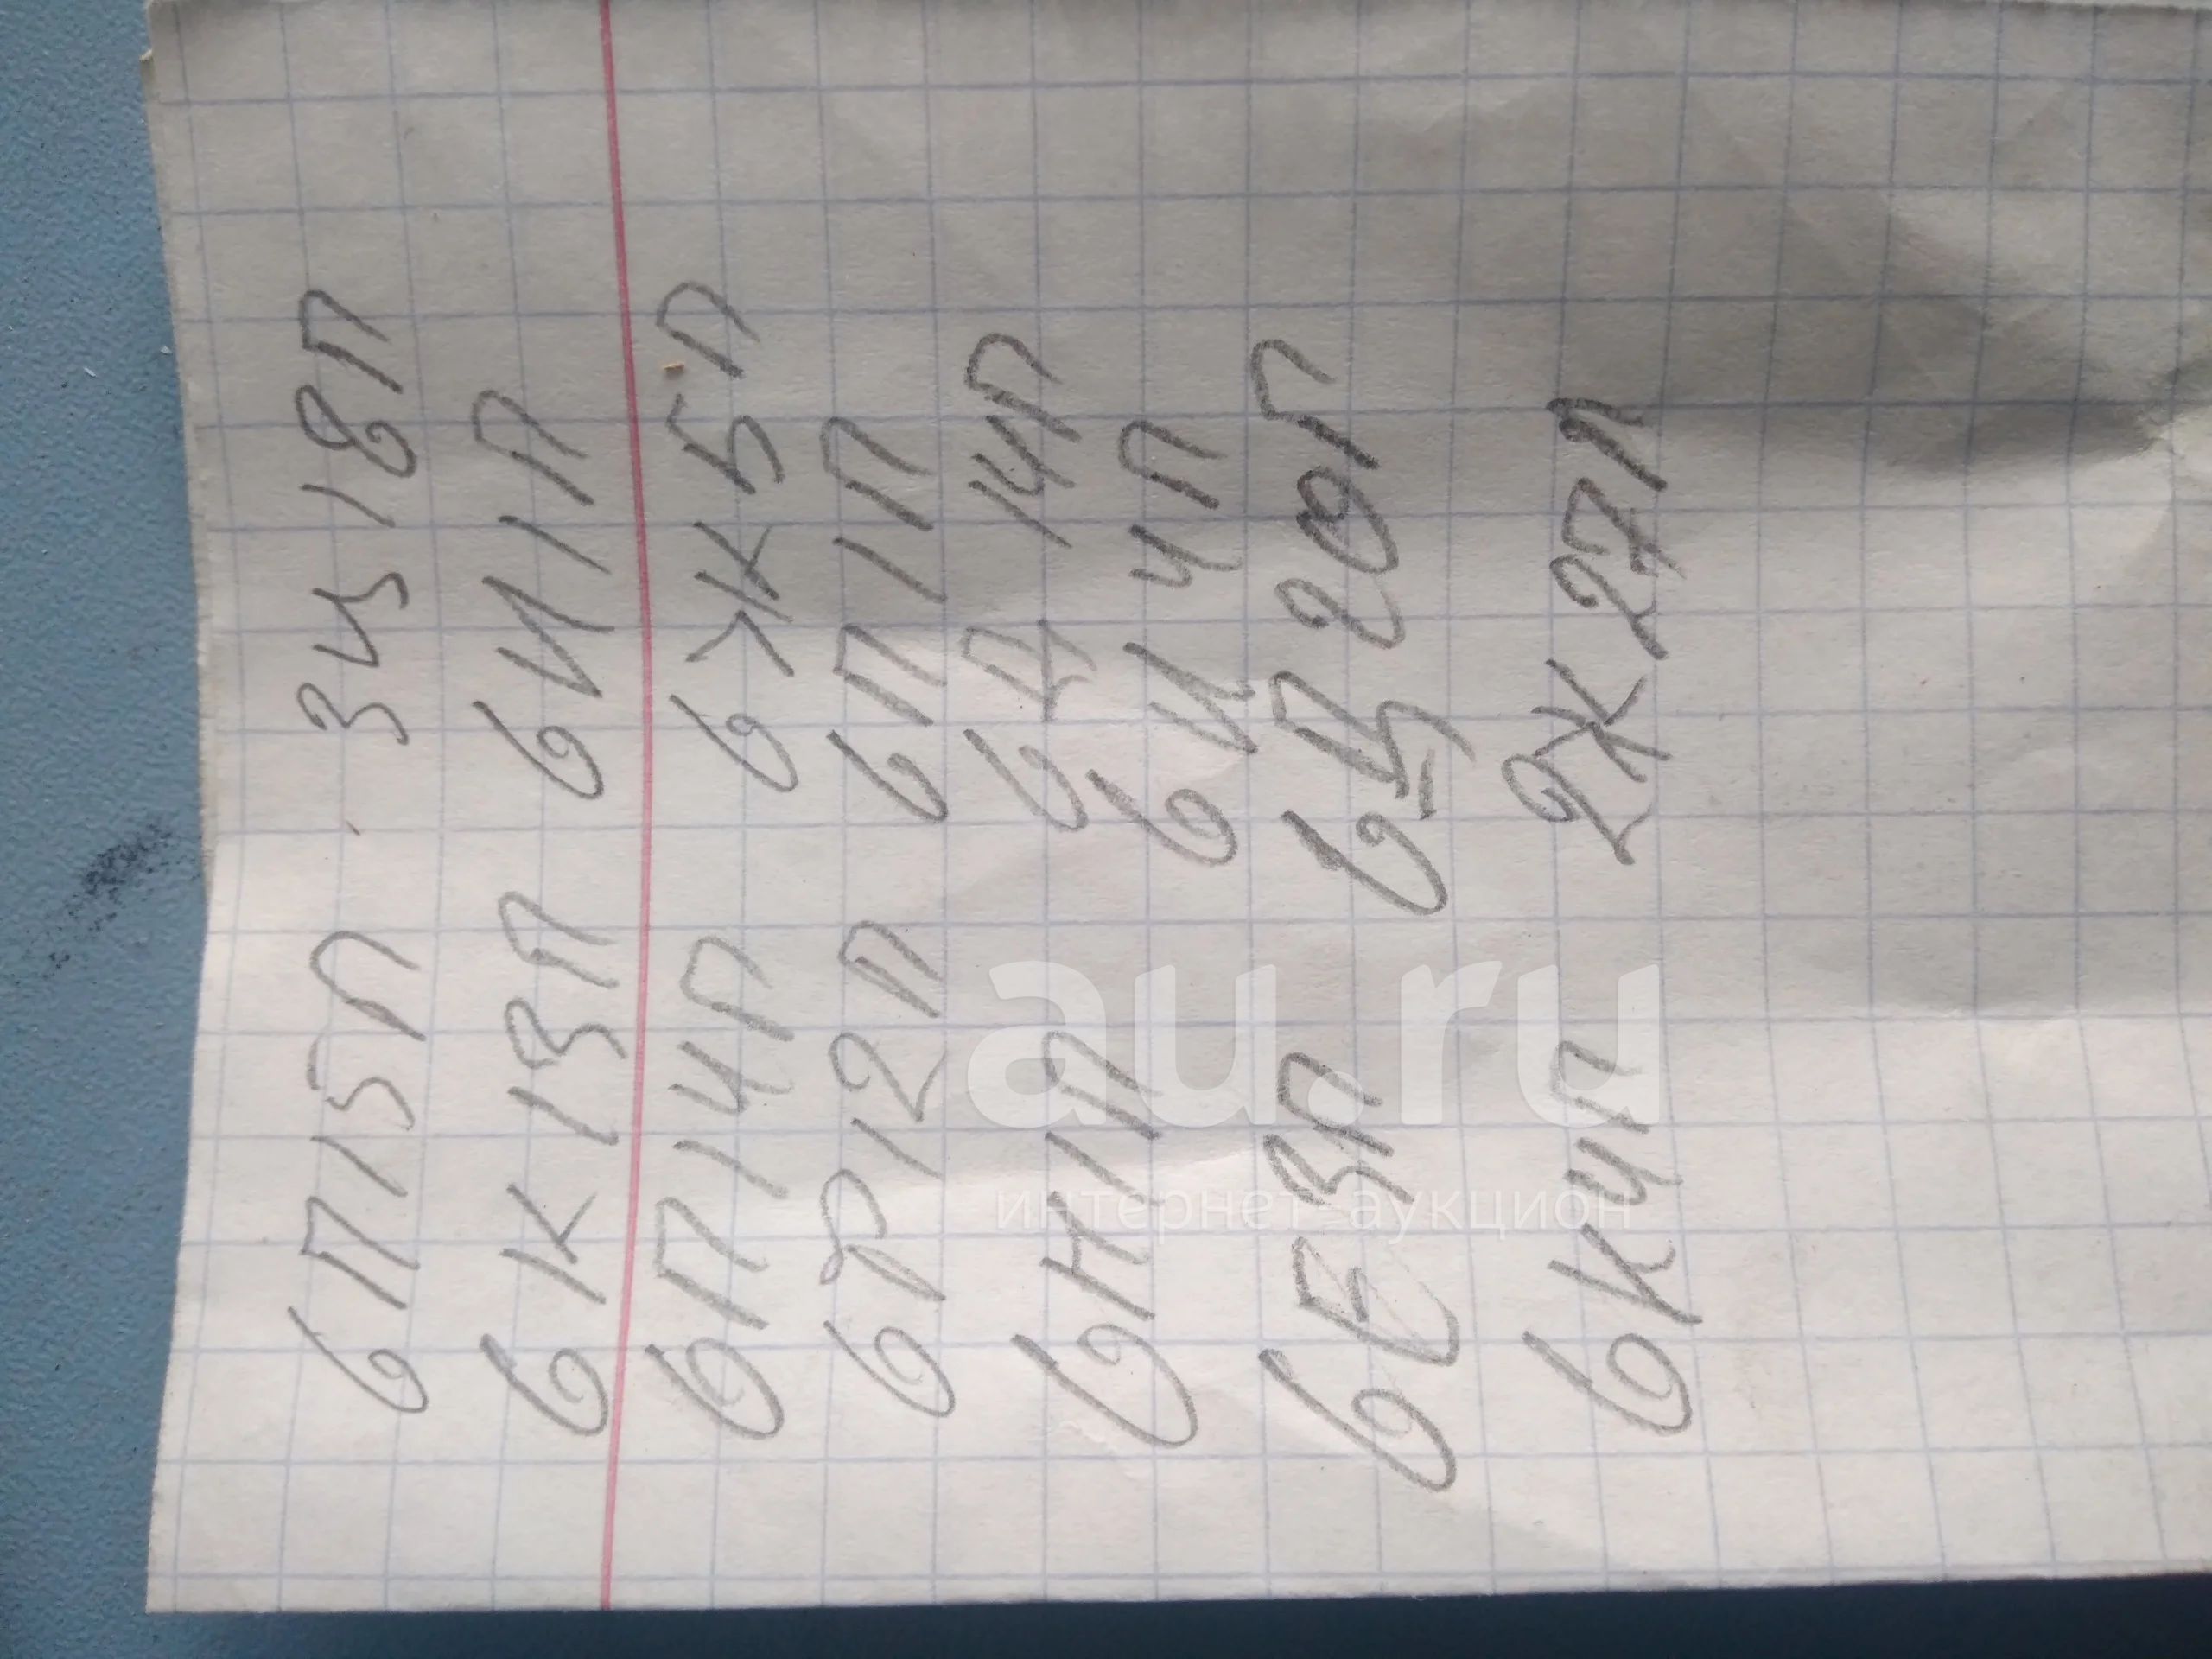 6П15П 3Ц18П
6К13П 6И1П
6П14П 6Ж5П
6Ф12П 6П1П
6Н1П 6Д14П
6Е3П 6И4П
6К4П 6Ц20П
2Ж27Л
au.ru
интернет-аукцион